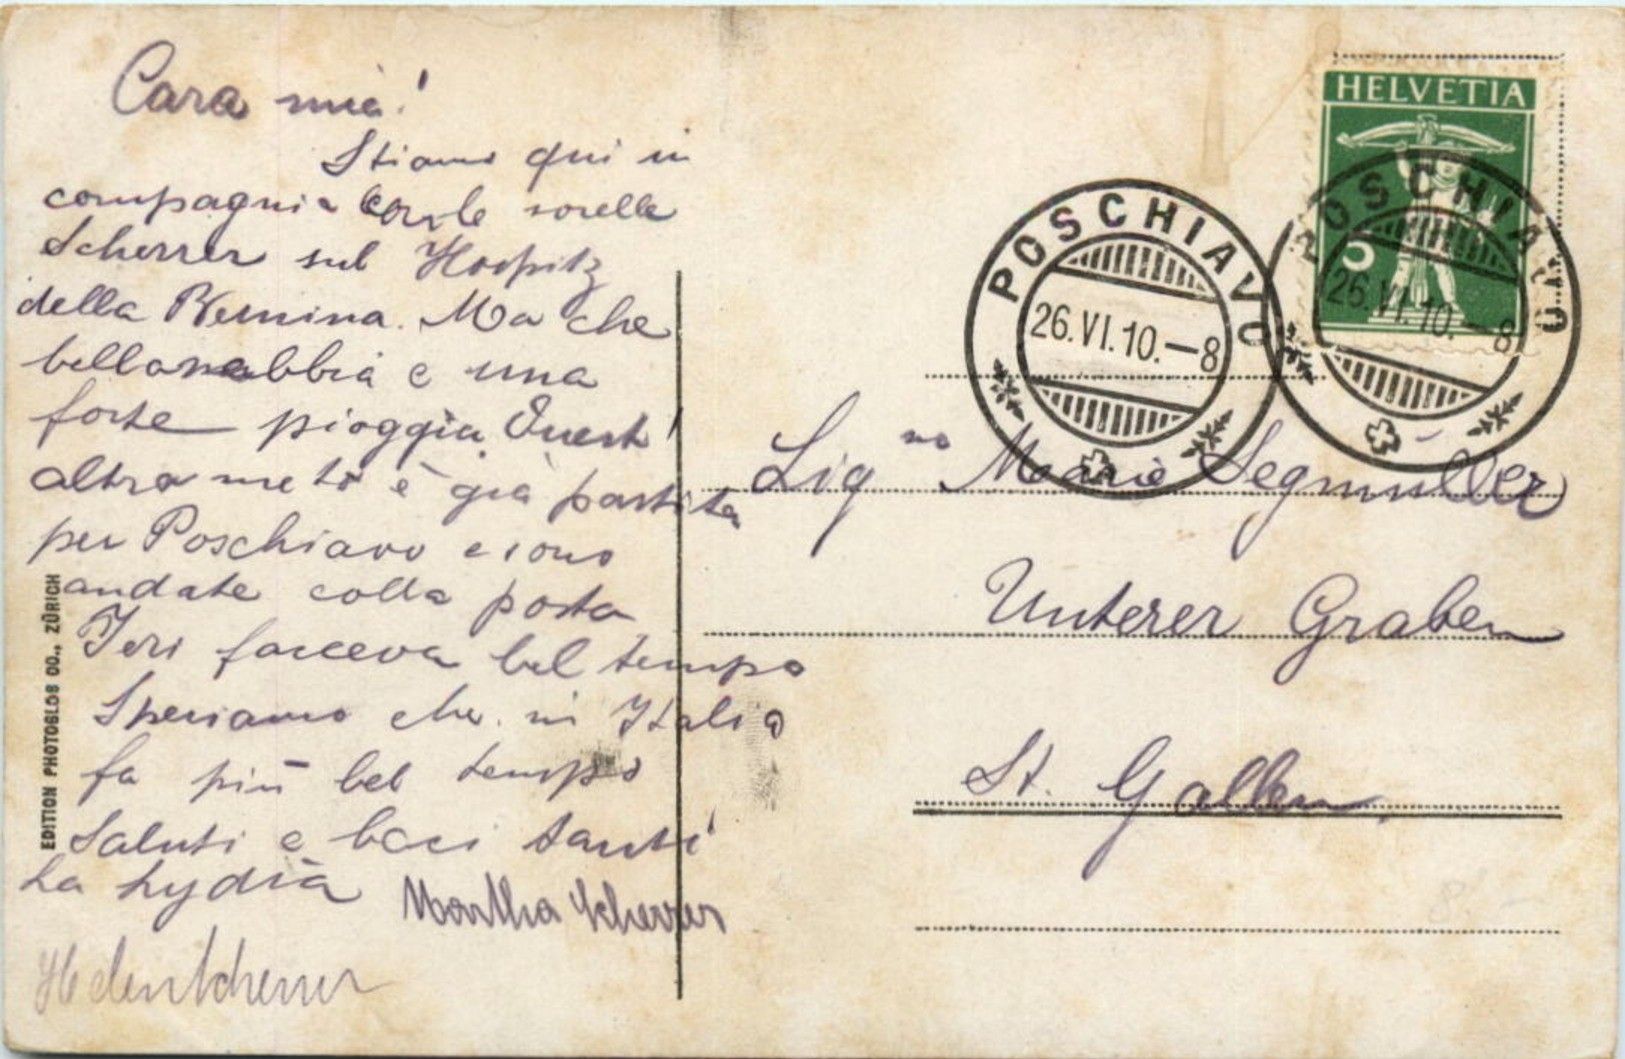 Cara mia!
Stiamo qui in
compagnia colle sorelle
Scherrer sul Hospitz
della Bernina. Ma che
bella nebbia e una
forte pioggia. Quest'
altra metà è già partita
per Poschiavo e sono
andate colla posta
Ieri faceva bel tempo
Speriamo che in Italia
fa più bel tempo
Saluti e baci tanti
La Lydia
Martha Scherrer
Helen Scherrer
EDITION PHOTOGLOB CO., ZÜRICH
HELVETIA
5
POSCHIAVO
26.VI.10.–8
POSCHIAVO
26.VI.10.–8
Sig na Marie Segmüller
Unterer Graben
St. Gallen.